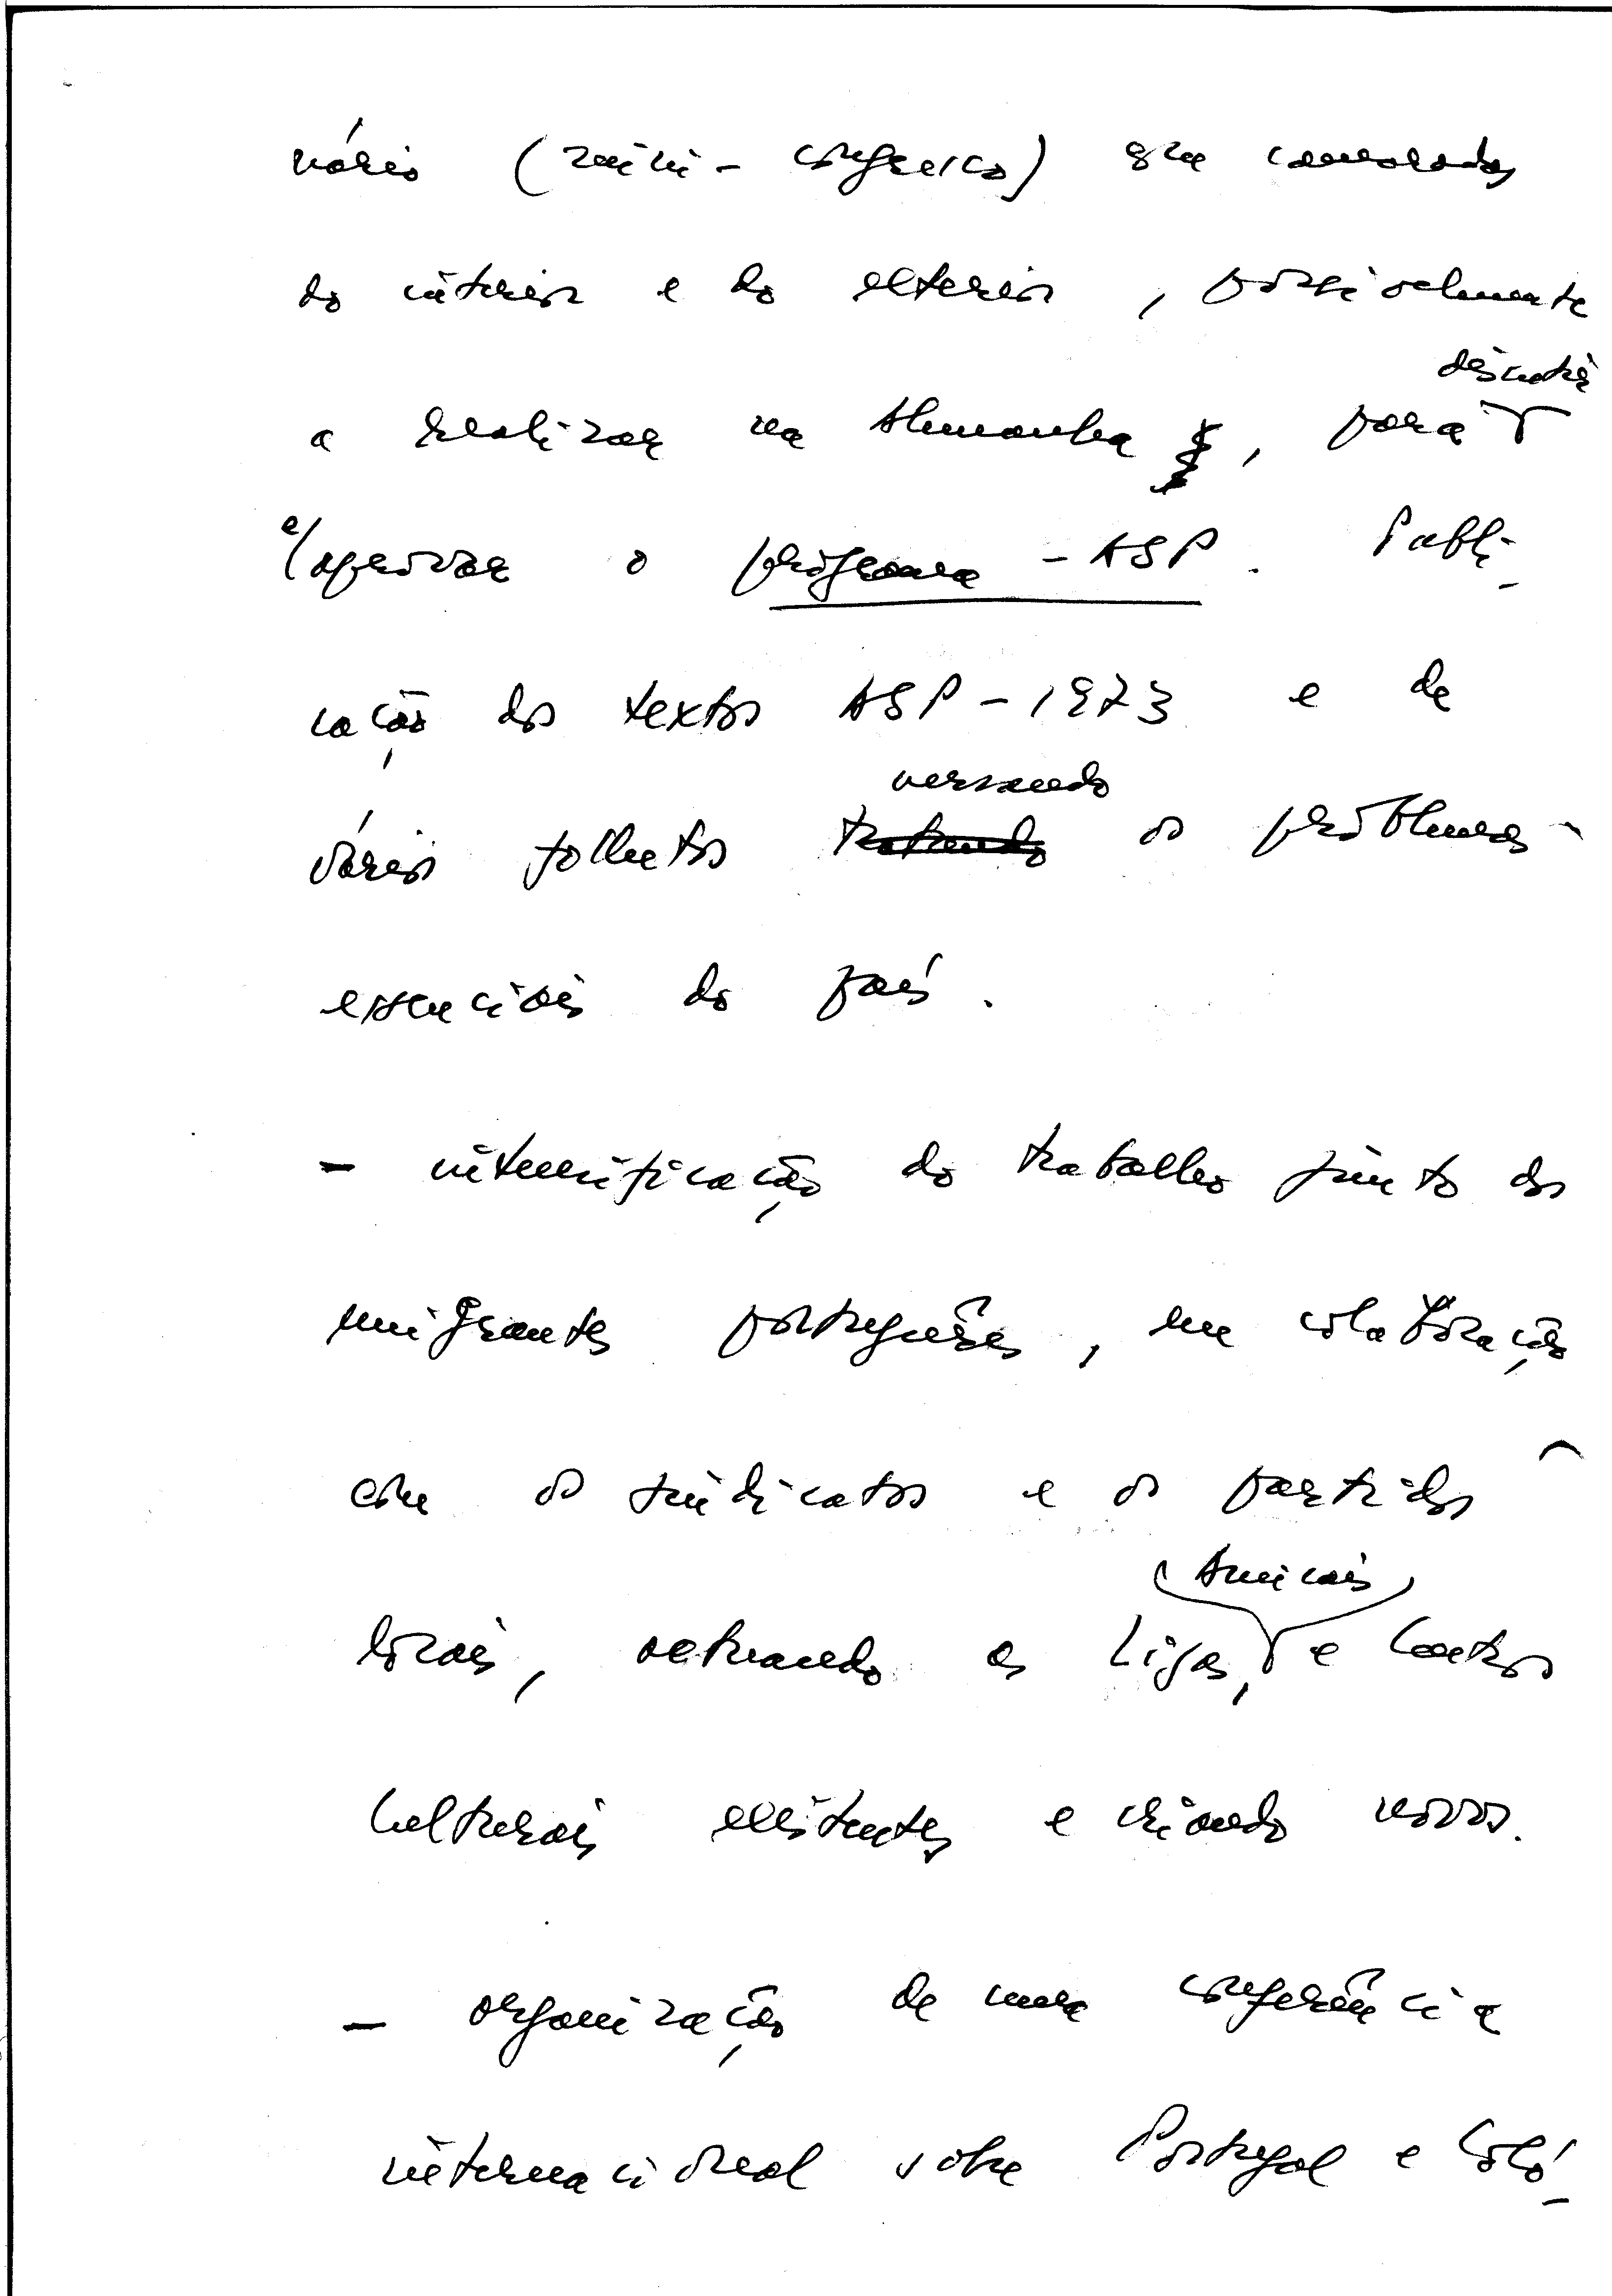 nário (mini-congresso) com camaradas
do interior e do exterior, possivelmente
a realizar na Alemanha, para discutir
e/aprovar o programa-ASP. Publi-
cação dos textos ASP-1973 e de
vários folhetos tratando versando os problemas
essenciais do país.
- intensificação do trabalho junto dos
emigrantes portugueses, em colaboração
com os sindicatos e os partidos
locais, activando as Ligas, (Amicais) e Centros
Culturais existentes e criando novos.
- organização de uma conferência
internacional sobre Portugal e Coló-